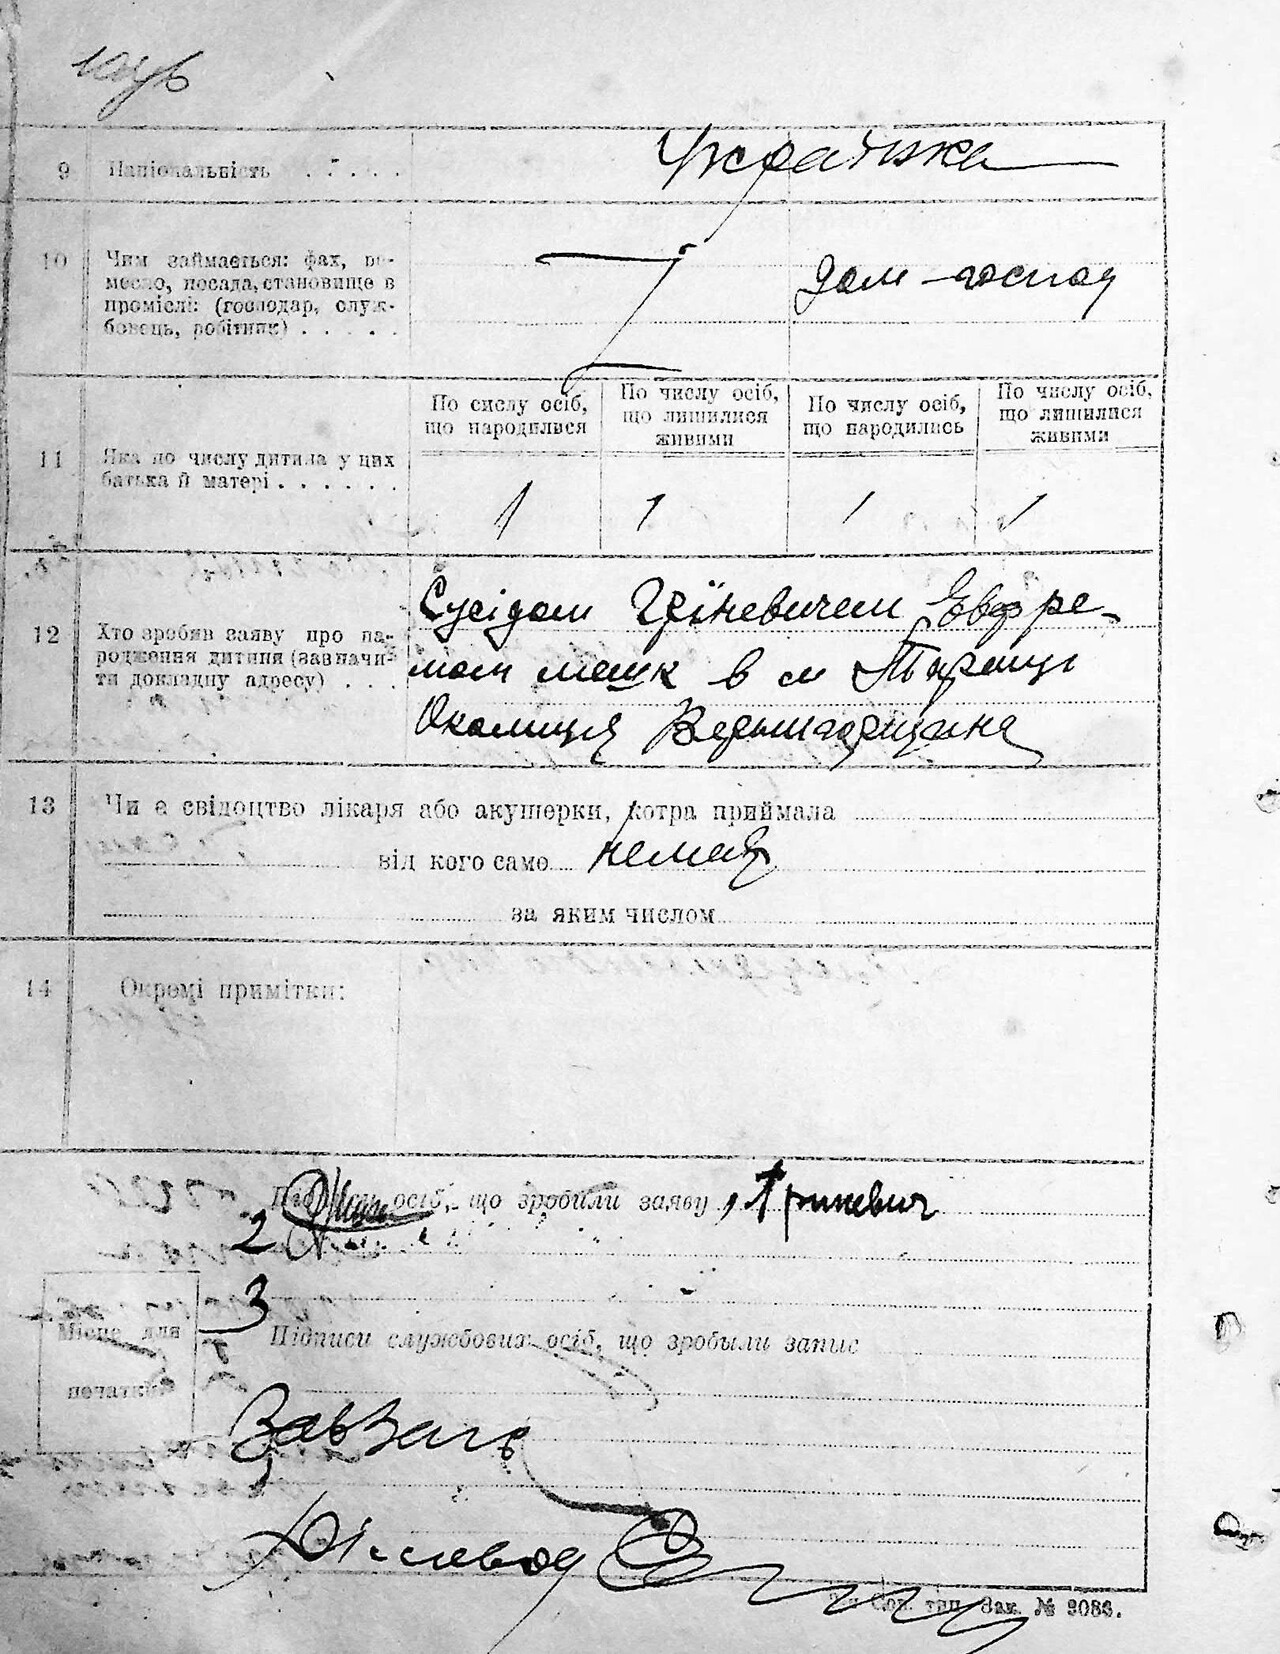 9 Національність . . . . .
Українка
10 Чим займається: фах, ре-
месло, посада, становище в
промислі: (господар, служ-
бовець, робітник) . . . . .
дом-господ
11 Яка по числу дитина у цих
батька й матері . . . . . .
По числу осіб,
що народилися
По числу осіб,
що лишилися
живими
По числу осіб,
що народились
По числу осіб,
що лишилися
живими
1 1 1 1
12 Хто зробив заяву про на-
родження дитини (зазначи-
ти докладну адресу) . . .
Сусідом Гріневичем Євфре-
мом мешк в м Таращі
Околиця
13 Чи є свідоцтво лікаря або акушерки, котра приймала
від кого саме немає
за яким числом
14 Окремі примітки:
осіб, що зробили заяву , Гриневич
2
3
Місце для
печатки
Підписи службових осіб, що зробыли запис
ЗавЗагс
Діловод
Зак. № 3086.